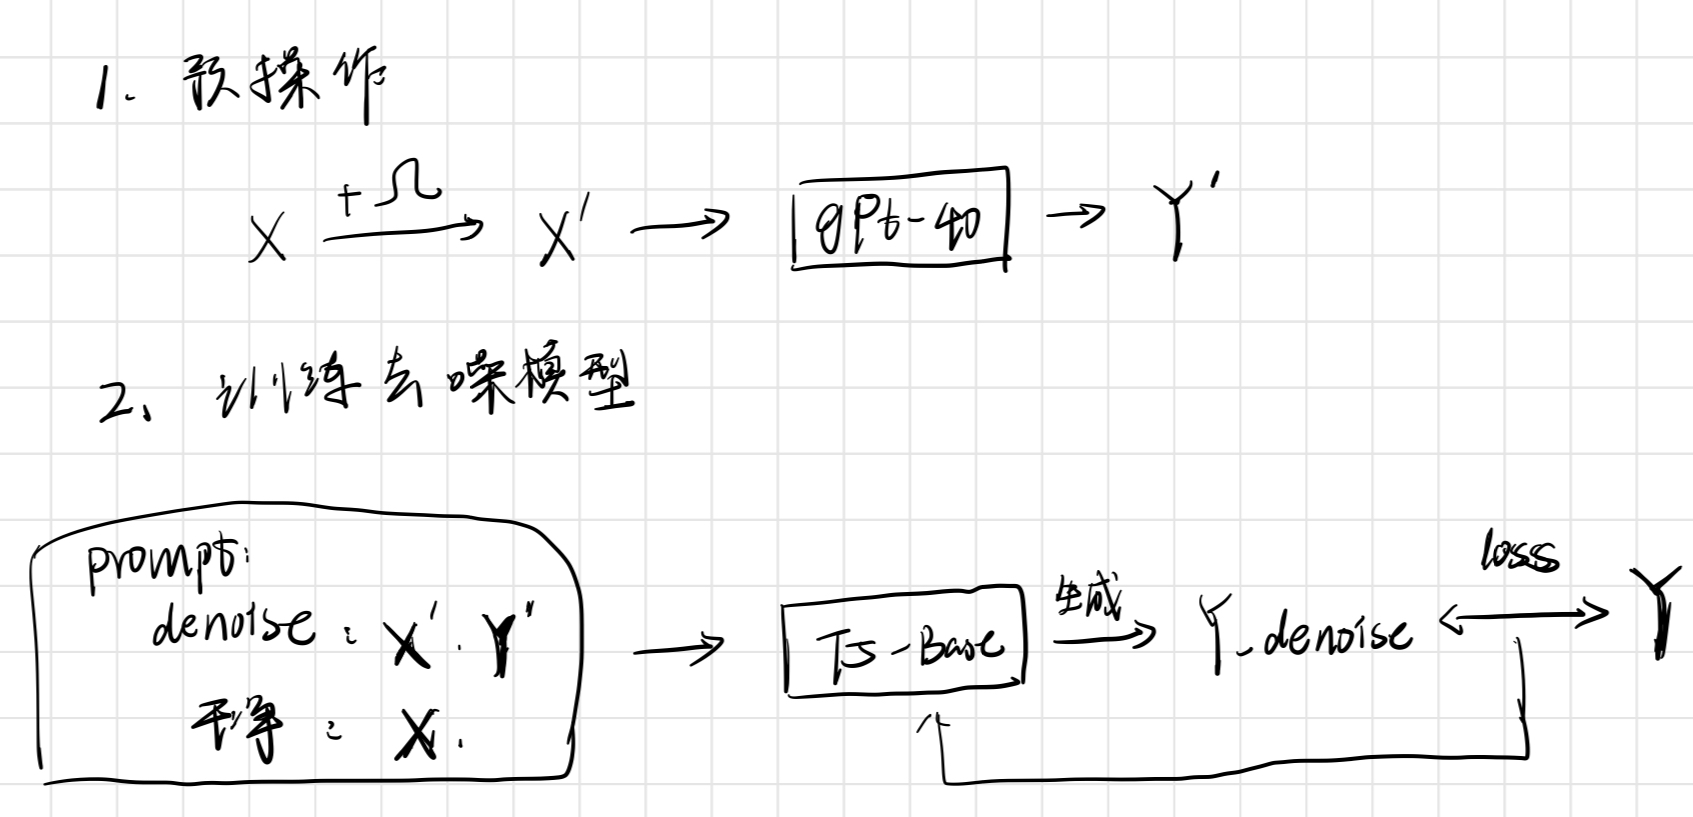 1. 预操作
X +Ω X' gpt-4o Y'
2、训练去噪模型
prompt:
denoise: X'. Y'
干净: X.
T5-Base 生成 Y_denoise loss Y